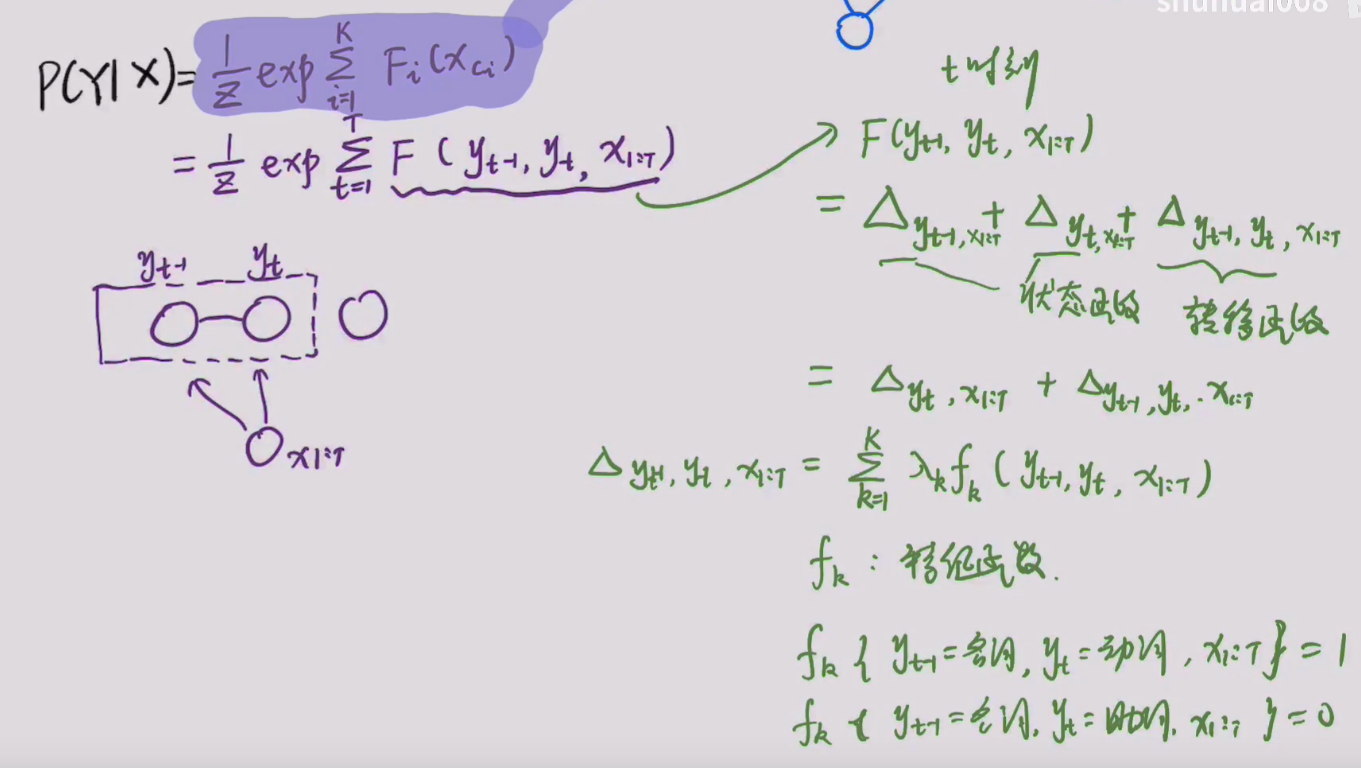 shuhuai008
P(Y|X)= 1/Z exp ∑_{i=1}^{K} F_i(x_{ci})
= 1/Z exp ∑_{t=1}^{T} F(y_{t-1}, y_t, x_{1:T})
y_{t-1} y_t
x_{1:T}
t时刻
F(y_{t-1}, y_t, x_{1:T})
= Δ_{y_{t-1}, x_{1:T}} + Δ_{y_t, x_{1:T}} + Δ_{y_{t-1}, y_t, x_{1:T}}
状态函数 转移函数
= Δ_{y_t, x_{1:T}} + Δ_{y_{t-1}, y_t, x_{1:T}}
Δ_{y_{t-1}, y_t, x_{1:T}} = ∑_{k=1}^{K} λ_k f_k(y_{t-1}, y_t, x_{1:T})
f_k : 特征函数.
f_k { y_{t-1}=名词, y_t=动词, x_{1:T} } = 1
f_k { y_{t-1}=名词, y_t=助词, x_{1:T} } = 0